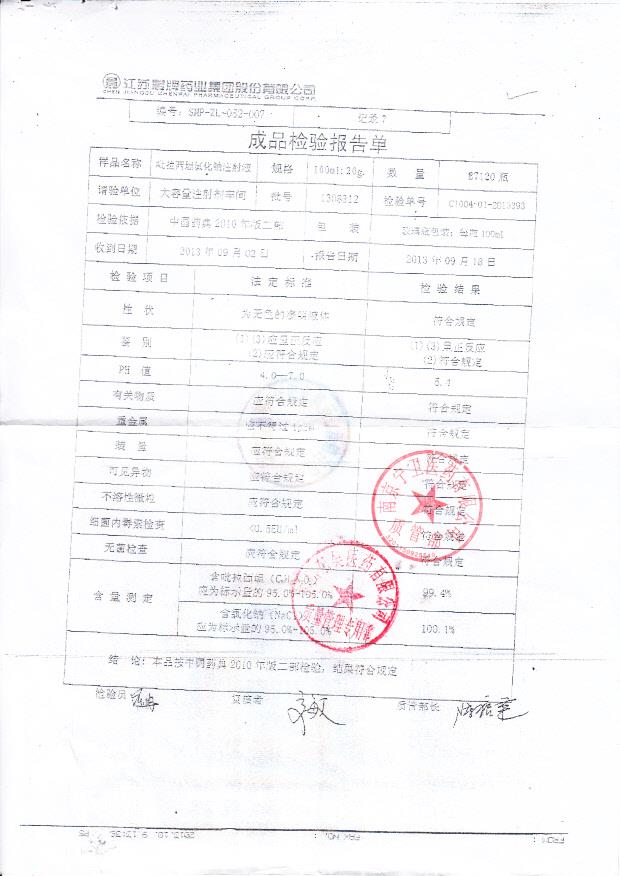 江苏晨牌药业集团股份有限公司
CHEN JIANGSU CHENPAI PHARMACEUTICAL GROUP CORP.
编号：SMP-ZL-052-007 记录7
成品检验报告单
样品名称 吡拉西坦氯化钠注射液 规格 100ml:20g 数 量 27120 瓶
请验单位 大容量注射剂车间 批号 1308312 检验单号 C1004-01-2013293
检验依据 中国药典2010年版二部 包 装 玻璃瓶包装：每瓶100ml
收到日期 2013 年 09 月 02 日 报告日期 2013 年 09 月 18 日
检 验 项 目 法 定 标 准 检 验 结 果
性 状 为无色的澄明液体 符合规定
鉴 别 (1)(3)应显正反应 (1)(3)呈正反应
(2)应符合规定 (2)符合规定
PH 值 4.0—7.0 5.4
有关物质 应符合规定 符合规定
重金属 符合规定
装 量 应符合规定 符合规定
可见异物 应符合规定 符合规定
不溶性微粒 应符合规定 符合规定
细菌内毒素检查 <0.5EU/ml 符合规定
无菌检查 应符合规定 符合规定
含 量 测 定 含吡拉西坦
应为标示量的 95.0%-105.0% 99.4%
含氯化钠（NaCl）
应为标示量的 95.0%-105.0% 100.1%
结 论：本品按中国药典 2010 年版二部检验，结果符合规定
检验员 复核者 质管部长
南京宁卫医药有限公司
质管部
医药有限公司
质量管理专用章
FROM : FAX NO. :